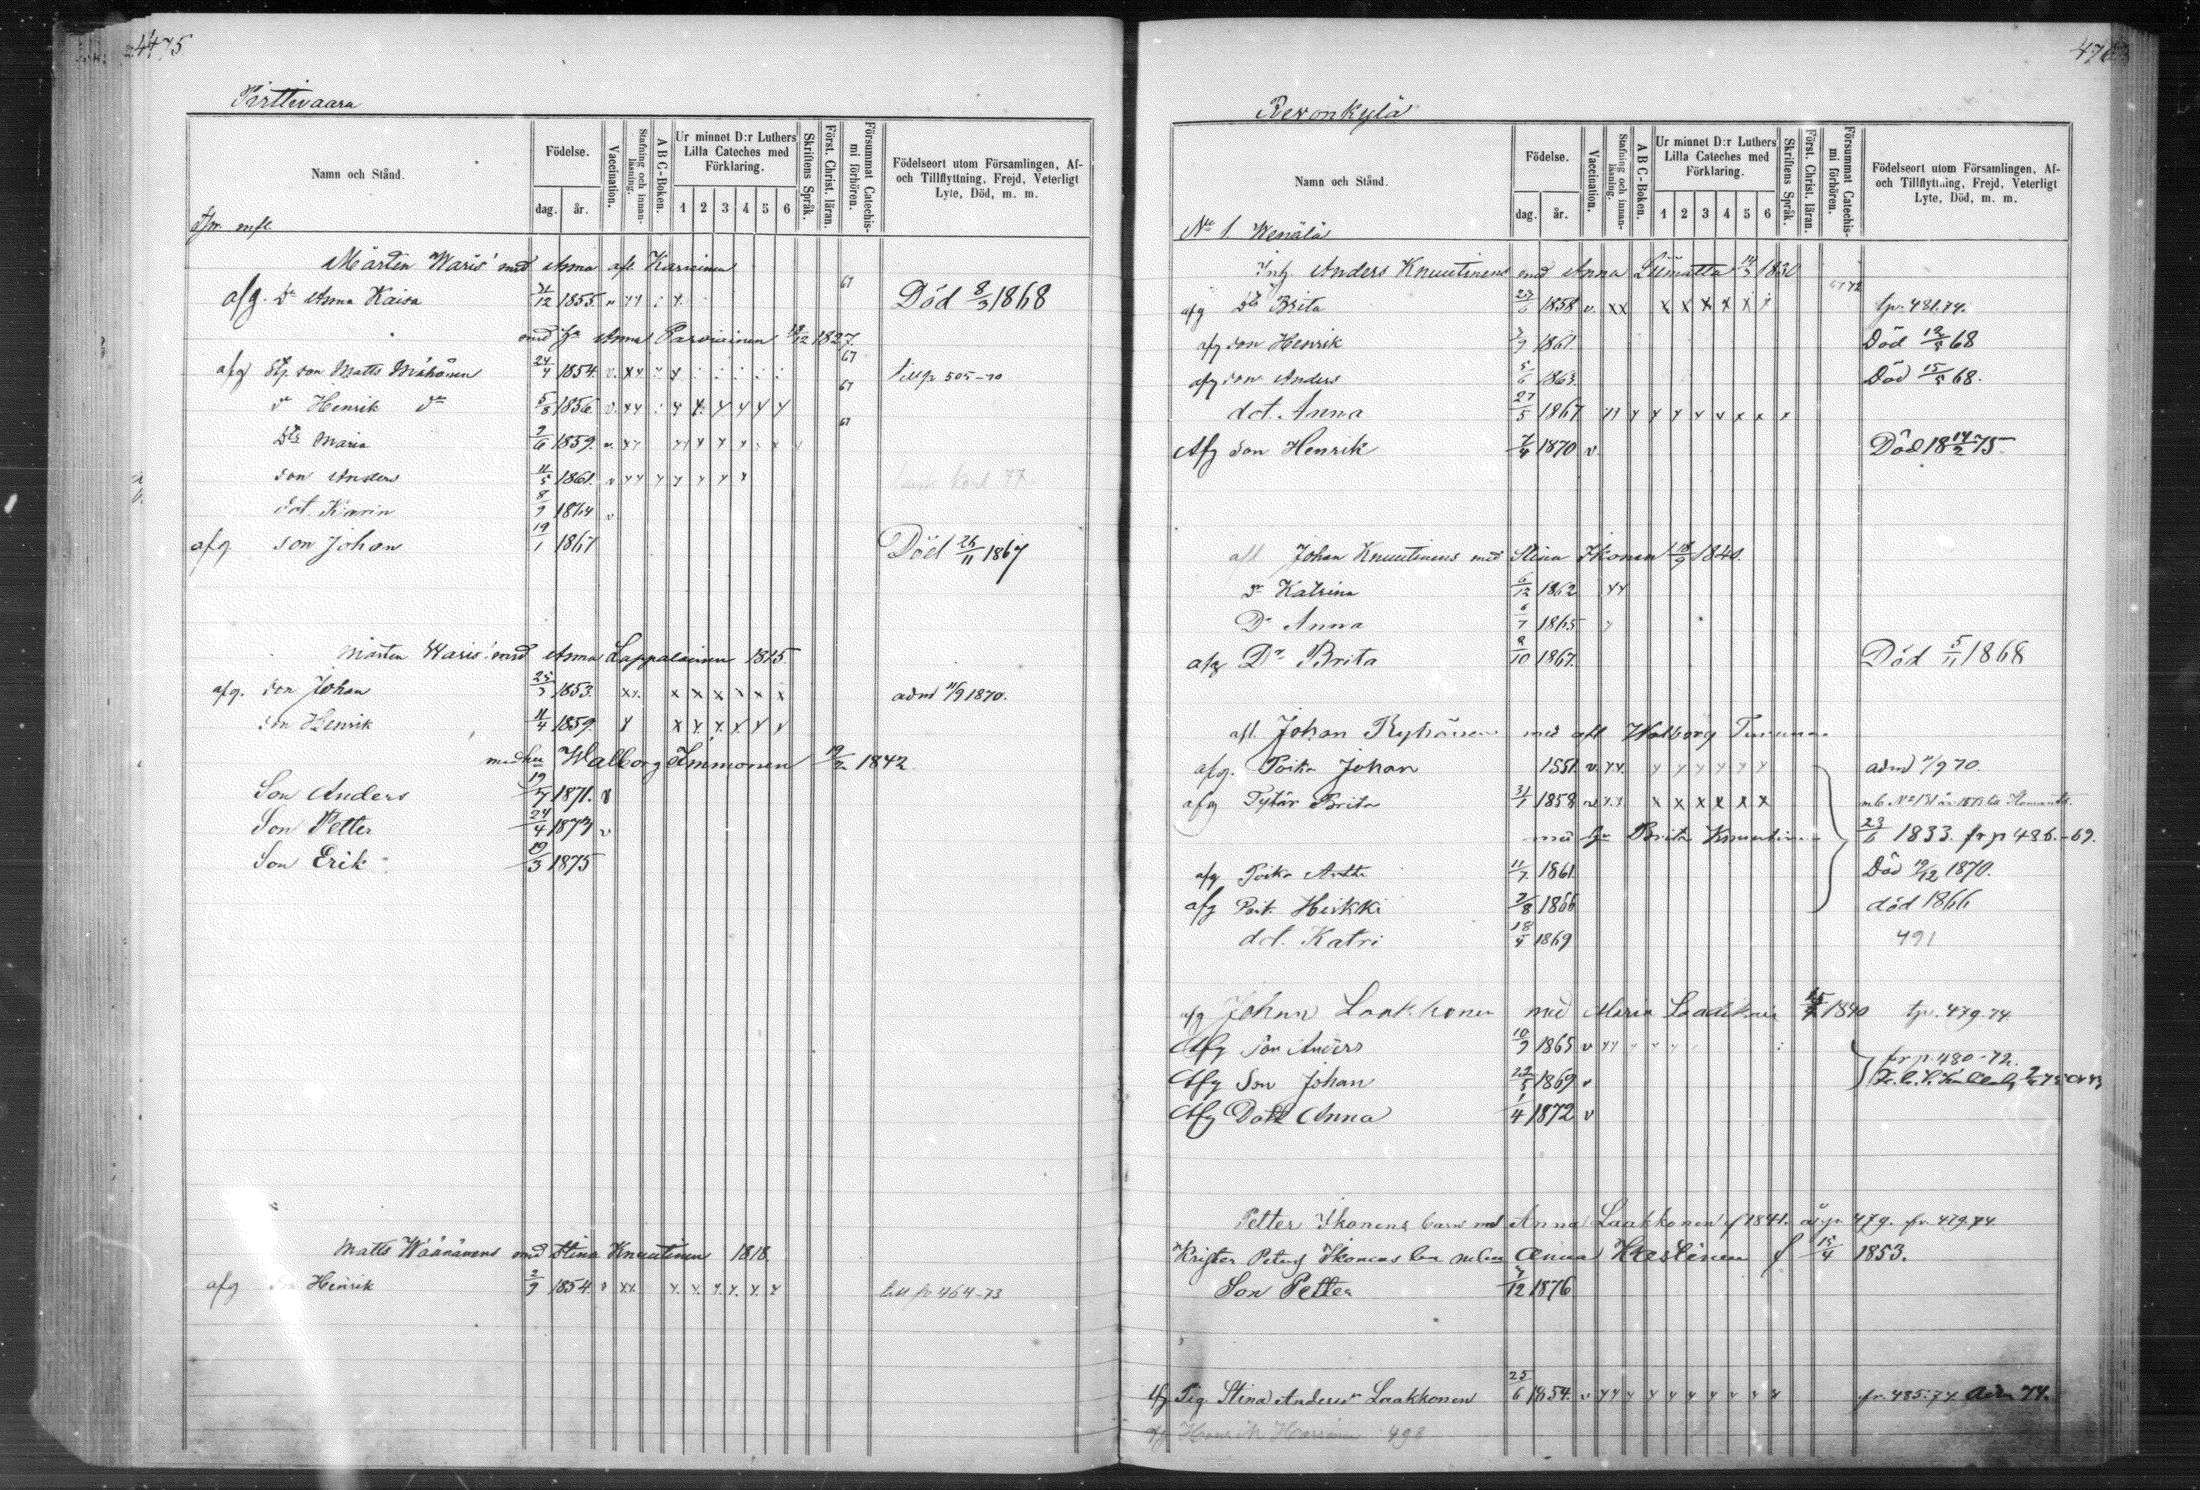 475
Pirttivaara
Namn och Stånd.
Födelse.
dag. år.
Vaccination.
Stafning och innanläsning.
A B C-Boken.
Ur minnet D:r Luthers Lilla Cateches med Förklaring.
1 2 3 4 5 6
Skriftens Språk.
Först. Christ. läran.
Försummat Catechismi förhören.
Födelseort utom Församlingen, Af- och Tillflyttning, Frejd, Veterligt Lyte, Död, m. m.
Mårten Waris' med Anna afl. Karvinen
afg. Dr Anna Kaisa 1855 v Död 8/3 1868
67
med Anna Parviainen 1827
afg son Matts 24/4 1854 v. till p 505-70
67
Henrik 5/8 1856 v.
67
Maria 1859
son Anders 11/5 1861
dot. Karin 8/9 1864 v
afg son Johan 19/1 1867 Död 26/11 1867
Mårten Waris' med Anna Lappalainen 1815
afg. son Johan 25/3 1853 adm 11/9 1870.
son Henrik 11/4 1859
med Walborg Immonen 19/2 1842
Son Anders 19/7 1871. v
Son Petter 24/4 1873 v
Son Erik 19/3 1875
Matts Wäänänens med Stina Knuutinen 1818
afg Henrik 2/9 1854 v till p 464-73
476
Revonkylä
Namn och Stånd.
Födelse.
dag. år.
Vaccination.
Stafning och innanläsning.
A B C-Boken.
Ur minnet D:r Luthers Lilla Cateches med Förklaring.
1 2 3 4 5 6
Skriftens Språk.
Först. Christ. läran.
Försummat Catechismi förhören.
Födelseort utom Församlingen, Af- och Tillflyttning, Frejd, Veterligt Lyte, Död, m. m.
No 1. Wenälä
Anders Knuutinens med Anna Liimatta 1830
afg Brita 23/6 1858 v. tp. 481.74.
afg son Henrik 1861 Död 12/5 68
afg son Anders 5/6 1863 Död 15/5 68.
dot. Anna 27/5 1867
Afg son Henrik 7/4 1870 v Död 18 14/2 75.
afl Johan Knuutinens med Stina Ikonen 18/9 1840.
Dr Katrina 6/12 1862
Dr Anna 6/7 1865
afg Dr Brita 8/10 1867. Död 5/11 1868
afl. Johan Ryhänen med afl Walborg Turunen
afg. Poika Johan 1851. v. adm 11/9 70.
afg Tytär Brita 31/1 1858 v
med Brita Knuutinen 23/6 1833. fr p 486.-69.
afg Poika Antti 11/7 1861. Död 19/12 1870.
afg Poik. Heikki 7/8 1866 död 1866
dot. Katri 18/4 1869 491
afg Johan Laakkonen med Maria Laatikain 1840 tp. 479.74
Afg Son Anders 10/9 1865 v fr p. 480-72.
Afg Son Johan 12/5 1869 v
Afg Dott Anna 1/4 1872 v
Petter Ikonens barn med Anna Laakkonen f 1841. 479. fr. 479.74
Krister Peters Ikonens Anna Kastinen f 15/4 1853.
Son Petter 7/12 1876
afg Pig. Stina Andersdr Laakkonen 25/6 1854. v fr. 485.74 Adm 74.
498